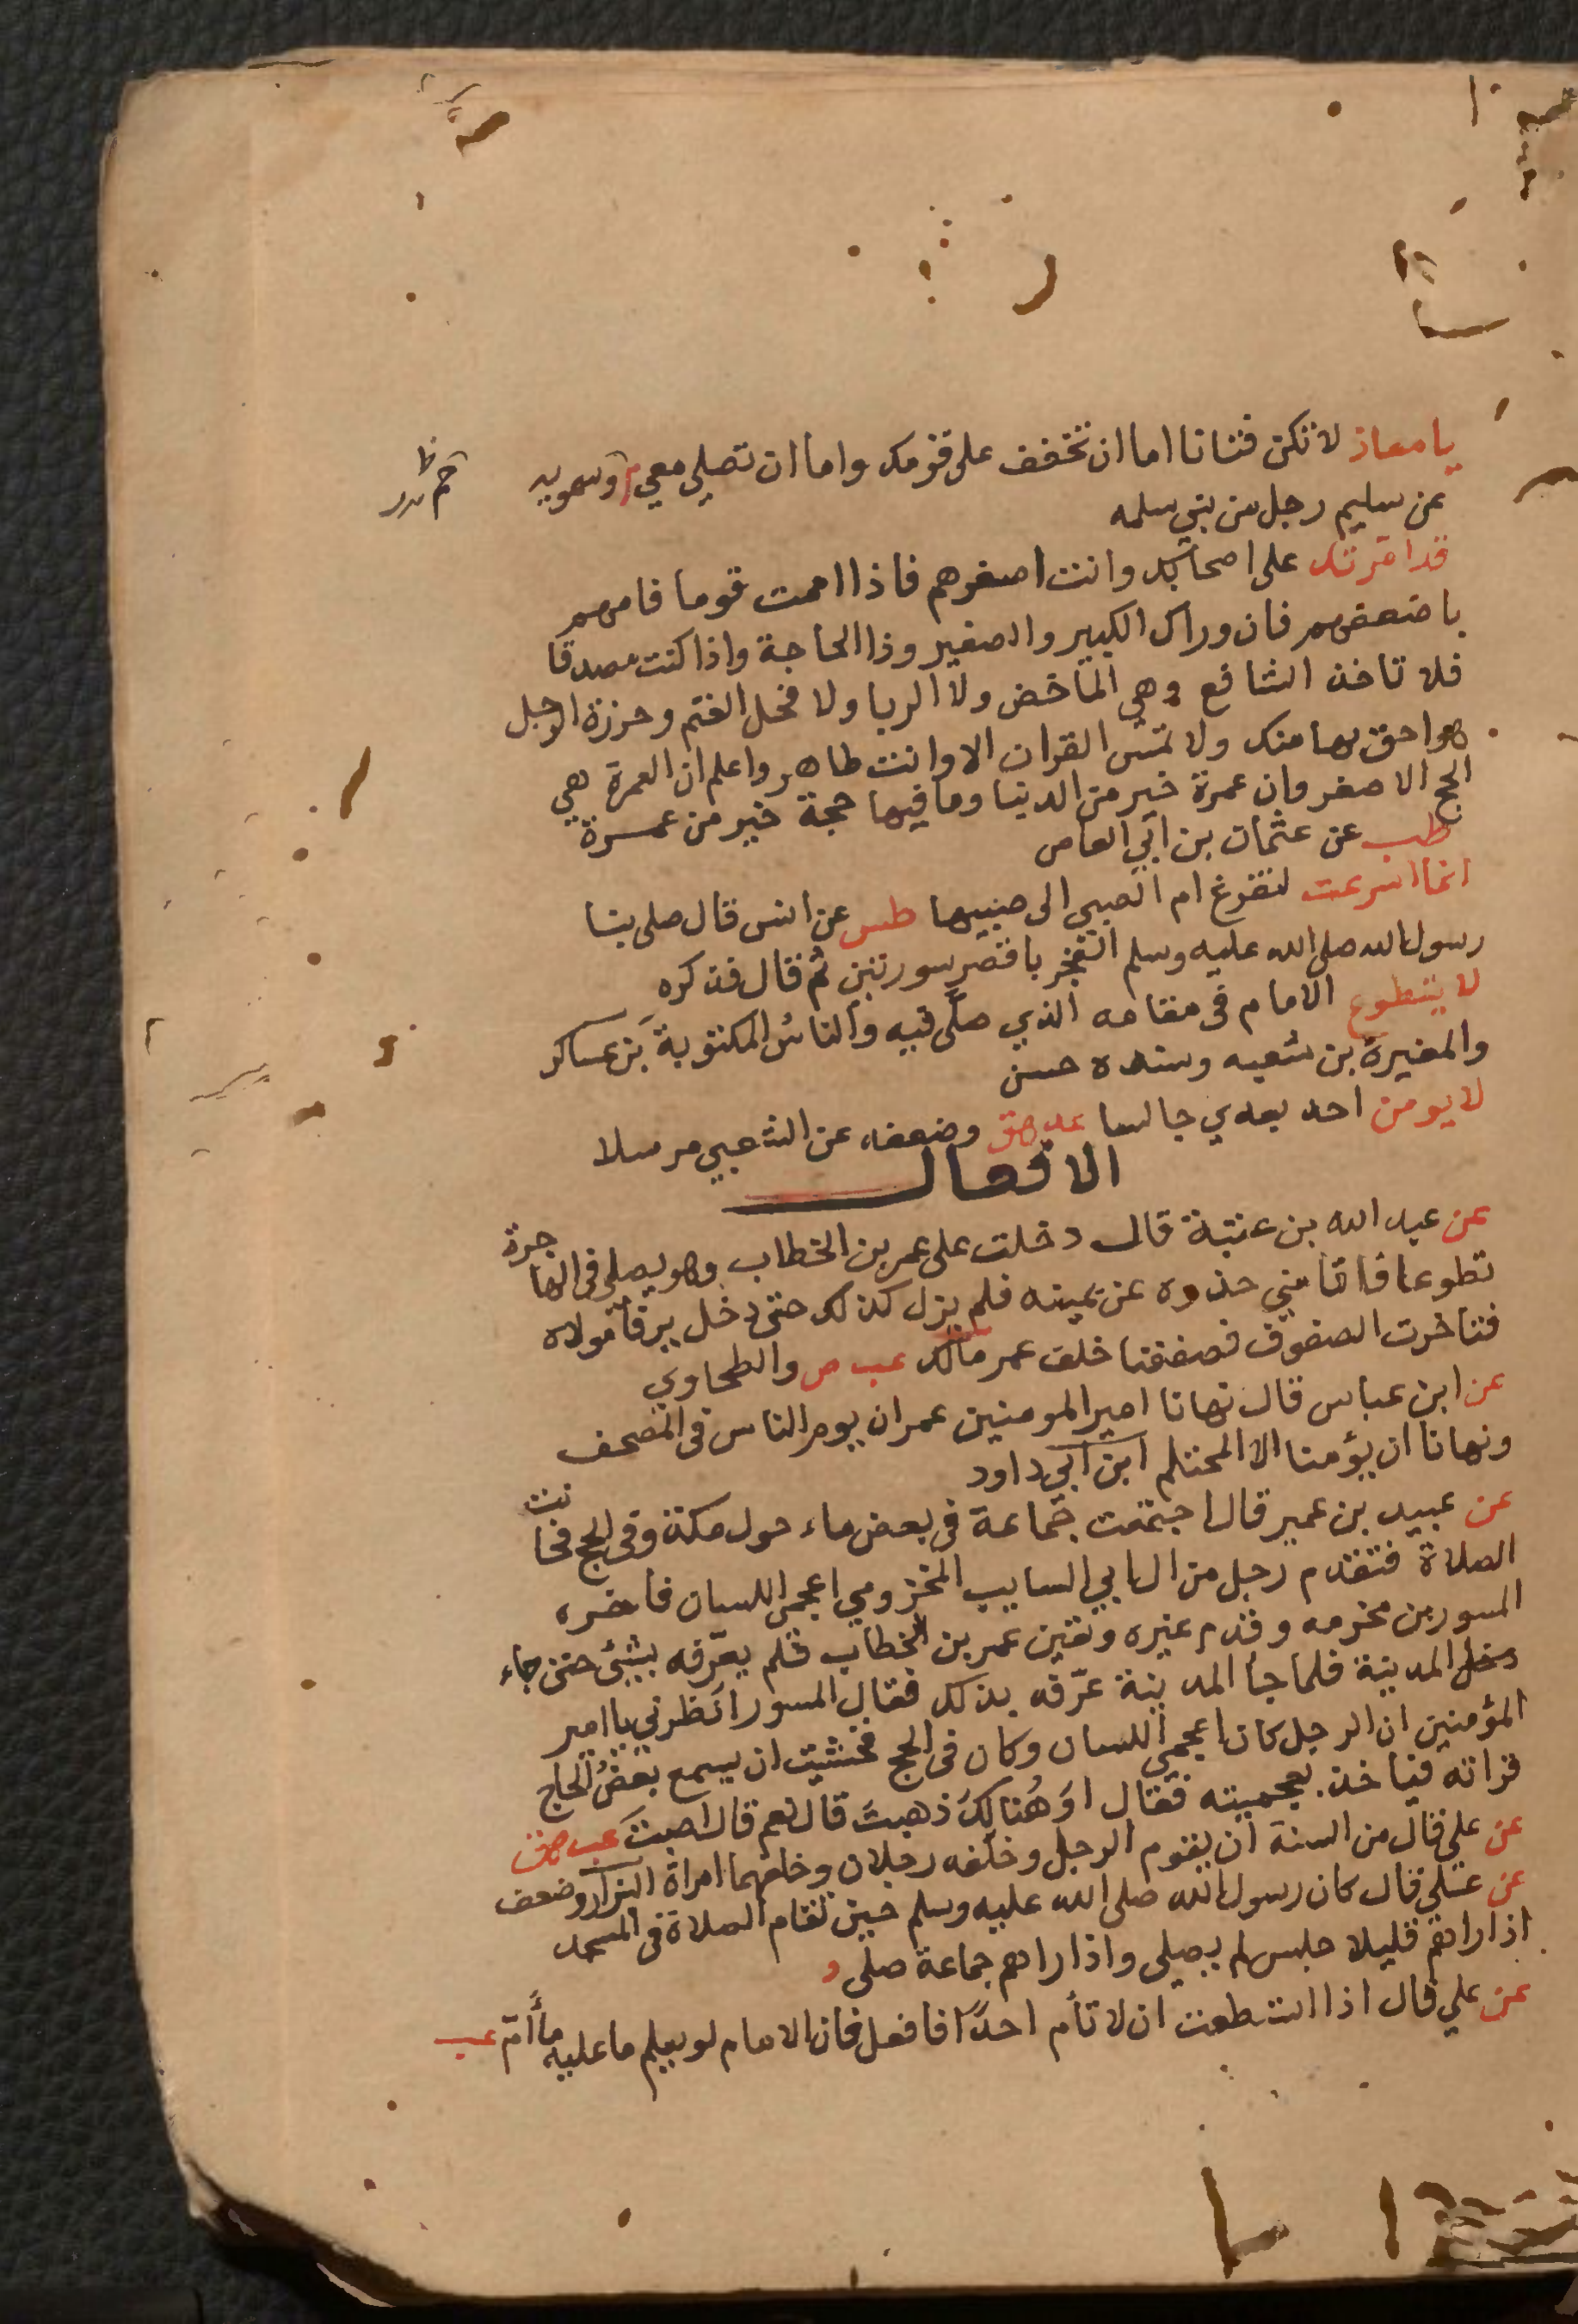 يا معاذ لا تكن فتانا اما ان تخفف على قومك واما ان تصلي معي م وسمويه
عن سليم رجل من بني سلمه
قد امرتك على اصحابك وانت اصغرهم فاذا اممت قوما فامهم
باضعفهم فان وراك الكبير والصغير وذا الحاجة واذا كنت مصدقا
فلا تاخذ الشافع وهي الماخض ولا الربا ولا فحل الغنم وحرزة الرجل
هو احق بها منك ولا تمس القران الا وانت طاهر واعلم ان العمرة هي
الحج الاصغر وان عمرة خير من الدنيا وما فيها حجة خير من عمرة
طب عن عثمان بن ابي العاص
انما اسرعت لتفرغ ام الصبي الى صبيها طس عن انس قال صلى بنا
رسول الله صلى الله عليه وسلم الفجر باقصر سورتين ثم قال فذكره
لا يتطوع الامام في مقامه الذي صلّى فيه والناسُ المكتوبة بن عساكر
والمغيرة بن شعبه وسنده حسن
لا يومن احد بعدي جالسا عد هق وضعفه عن الشعبي مرسلا
الافعال
عن عبد الله بن عتبة قال دخلت على عمر بن الخطاب وهو يصلي في الهاجرة
تطوعا فاقامني حذوه عن يمينه فلم يزل كذلك حتى دخل يرفأ مولاه
فتاخرت الصفوف فصففنا خلف عمر مالك عب ص والطحاوي
عن ابن عباس قال نهانا امير المومنين عمر ان يوم الناس في المصحف
ونهانا ان يؤمنا الا المحتلم ابن ابي داود
عن عبيد بن عمير قال اجتمعت جماعة في بعض ماء حول مكة وفي الحج فحانت
الصلاة فتقدم رجل من ال ابي السايب المخزومي اعجمي اللسان فاخره
المسور بن مخرمه وقدم غيره عمر بن الخطاب فلم يعرّفه بشئ حتى جاء
المدينة فلما جاء المدينة عرّفه بذلك فقال المسور انظرني يا امير
المؤمنين ان الرجل كان اعجمي اللسان وكان في الحج فخشيت ان يسمع بعضُ الحاج
قراته فياخذ بعجميته فقال اوَ هُنالِكَ ذهبتَ قال نعم قال اصبتَ عب هق
عن علي قال من السنة ان يقوم الرجل وخلفه رجلان وخلفهما امراة البزار وضعف
عن علي قال كان رسول الله صلى الله عليه وسلم حين تقام الصلاة في المسجد
اذا راهم قليلا جلس لم يصلي واذا راهم جماعة صلى د
عن علي قال اذا استطعت ان لا تأم احدًا فافعل فان الامام لو يعلم ما عليه ما أمّ عب